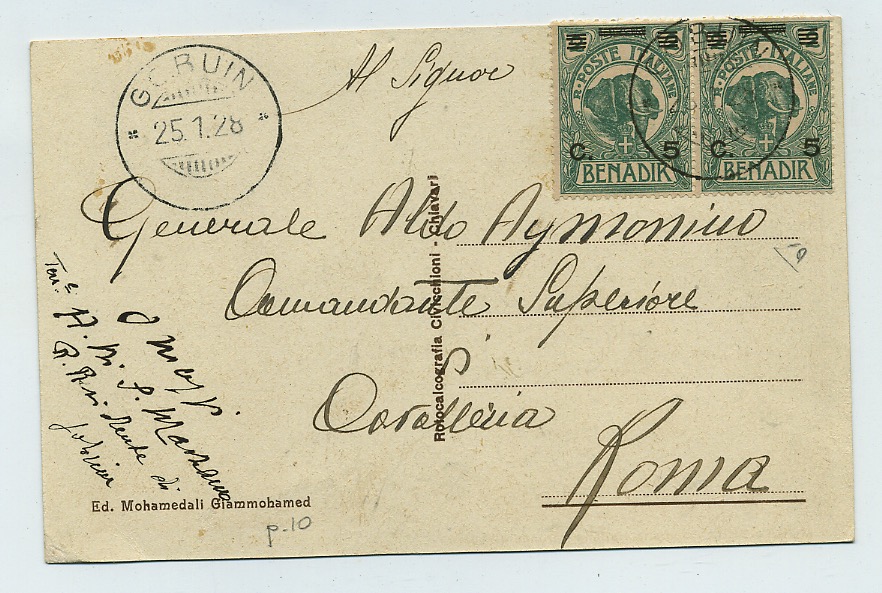 GOBUIN
25.1.28
R. POSTE ITALIANE
C. 5
BENADIR
R. POSTE ITALIANE
C 5
BENADIR
Al Signor
Generale Aldo Aymonino
Comandante Superiore
di
Cavalleria
Roma
Omaggi
Ten.e
R. Residente di
Gobuin
Rotocalcografia Civicchioni - Chiavari
Ed. Mohamedali Giammohamed
p.10